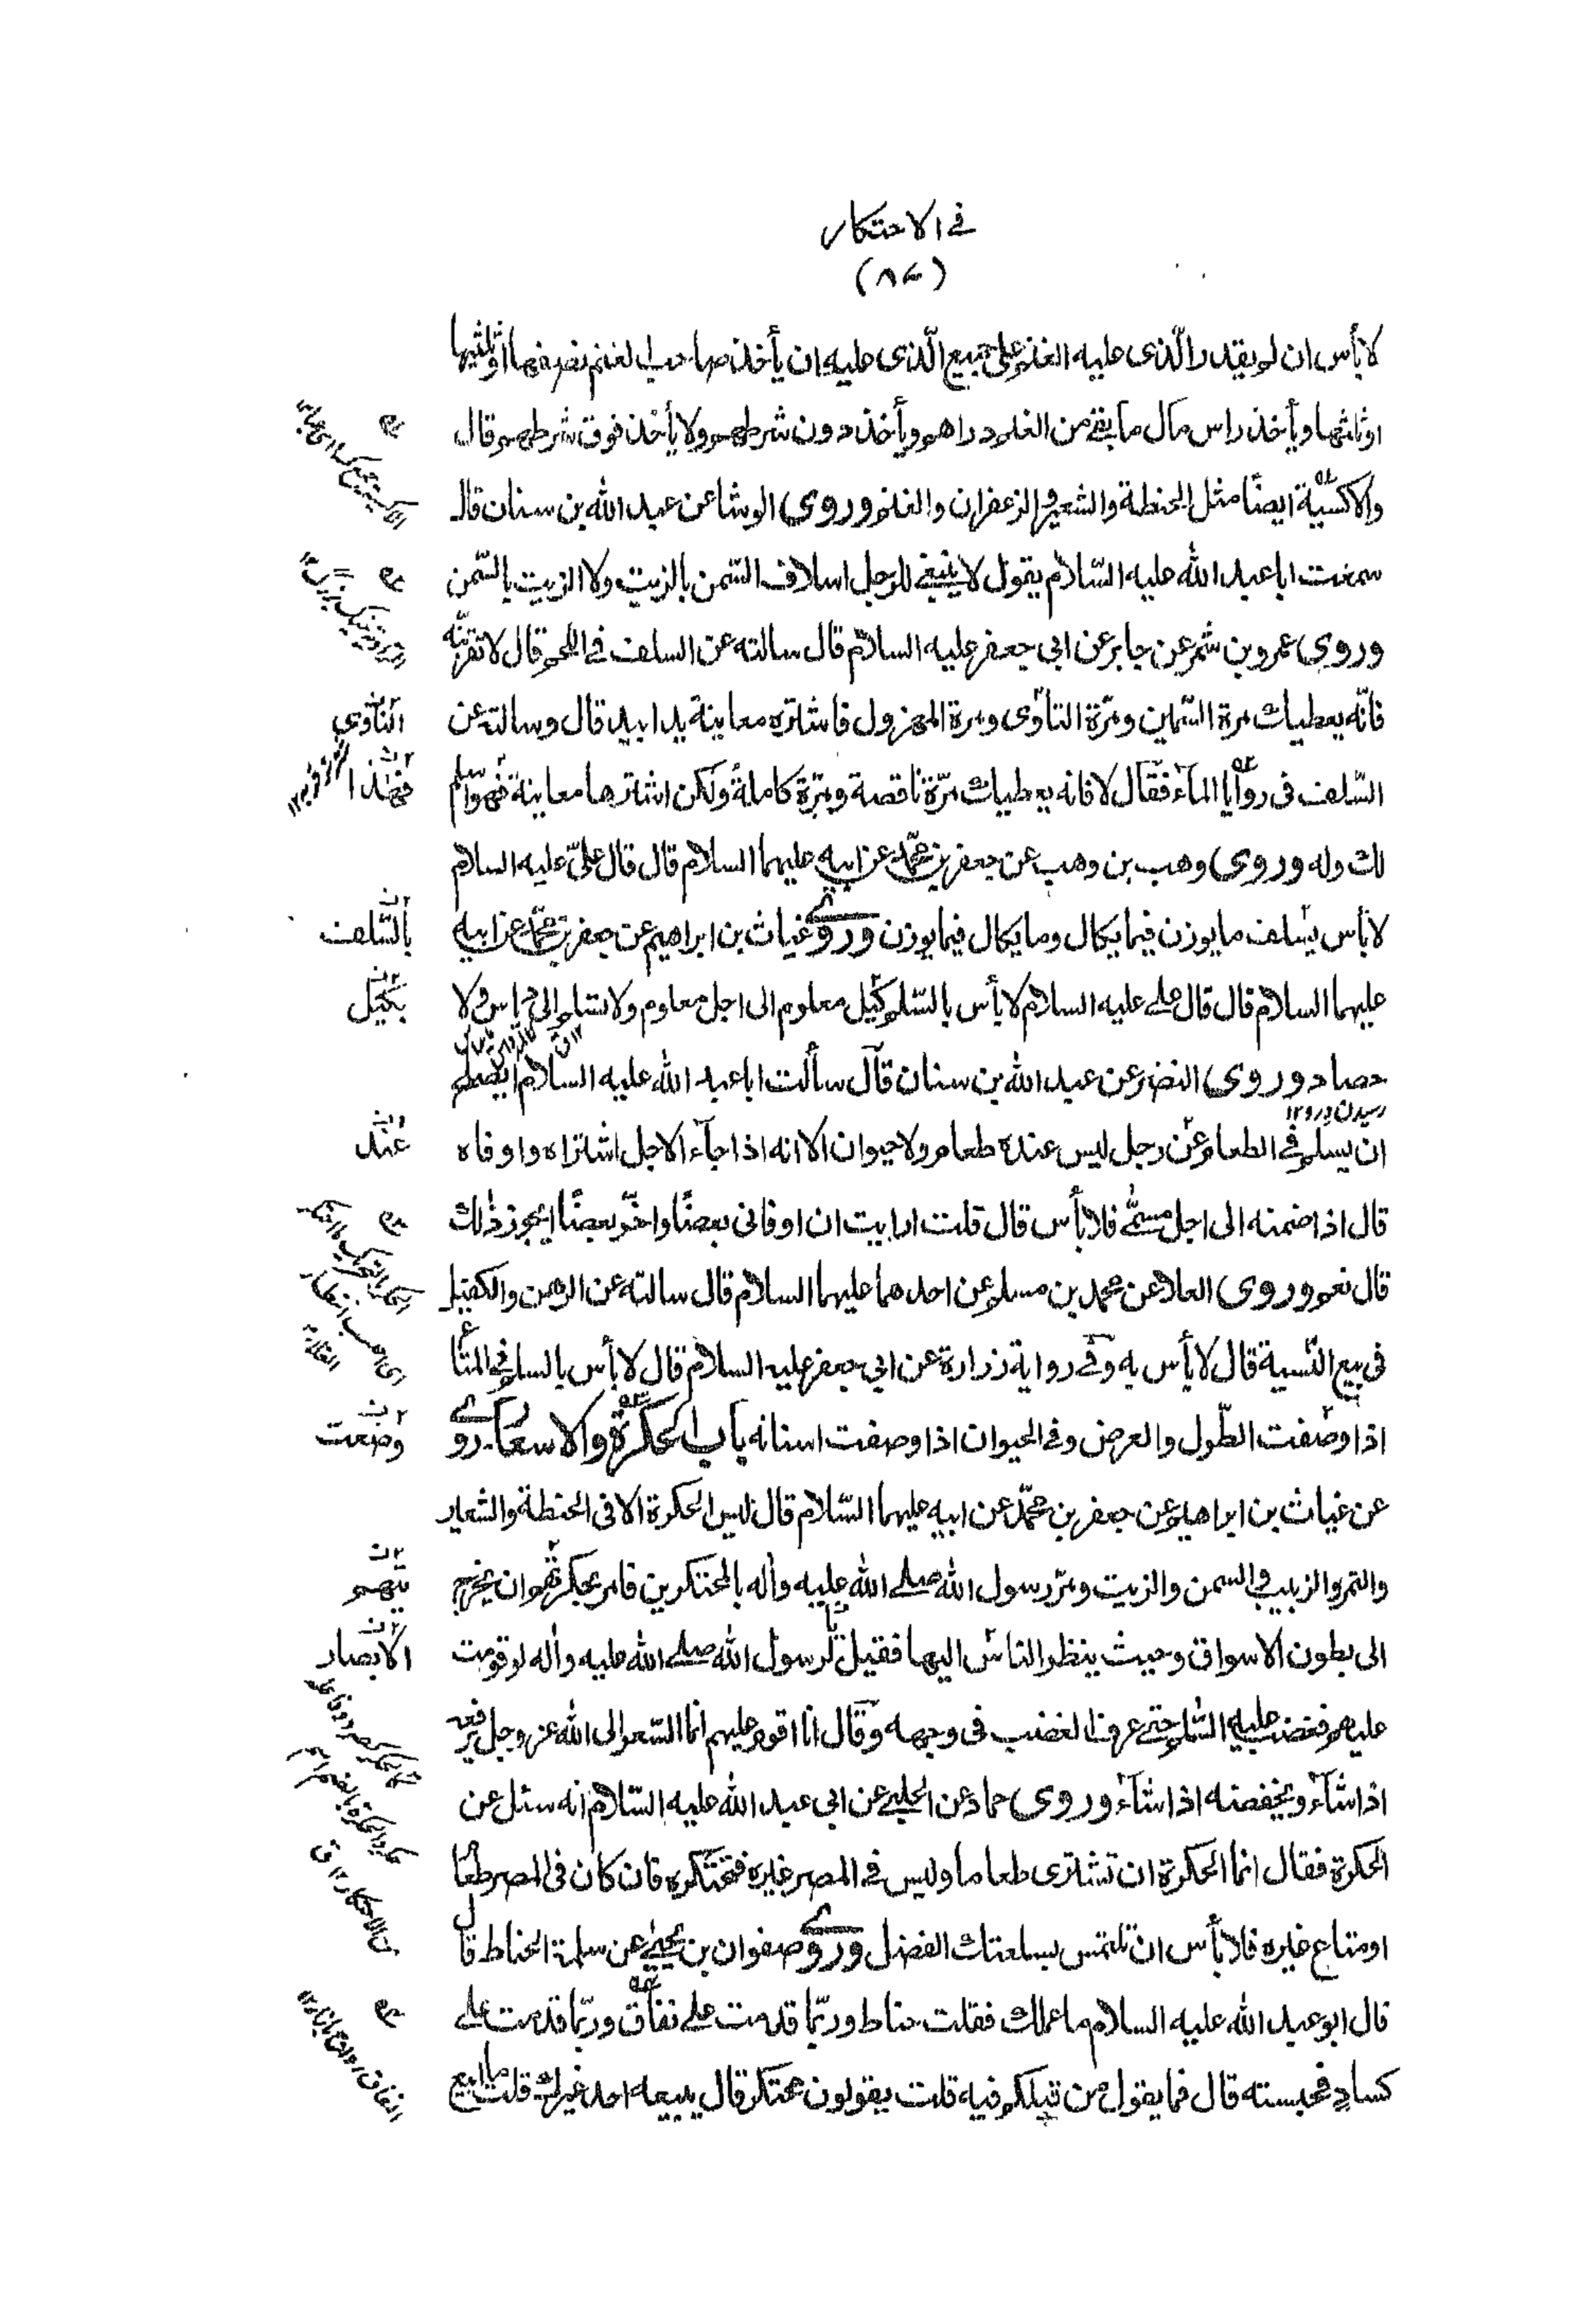 في الاحتكار
(٨٧)
لا بأس ان لم يقدر الّذى عليه الغنم على جميع الّذى عليه ان يأخذ صاحب الغنم نصفها او ثلثيها
او ثلثها ويأخذ راس مال ما بقي من الغنم دراهم ويأخذ دون شرطهم ولا يأخذ فوق شرطهم وقال
والاكسية ايضًا مثل الحنطة والشعير والزعفران والغنم وروى الوشا عن عبد الله بن سنان قال
سمعت ابا عبد الله عليه السّلام يقول لا ينبغي للرجل اسلاف السّمن بالزيت ولا الزيت بالسّمن
وروى عمرو بن شمر عن جابر عن ابى جعفر عليه السلام قال سالته عن السلف في اللحم قال لا تقربنّه
فانّه يعطيك مرة السّمين ومرّة التاوى ومرة المهزول فاشتره معاينة يدا بيد قال وسالته عن
التاوي
السّلف فى روايا الماء فقال لا فانه يعطيك مرّة ناقصة ومرّة كاملة ولكن اشترها معاينة فهو اسلم
فهذا
لك وله وروى وهب بن وهب عن جعفر بن محمّد عن ابيه عليهما السلام قال قال علىّ عليه السلام
لا بأس يسلف ما يوزن فيما يكال وما يكال فيما يوزن وروى غياث بن ابراهيم عن جعفر بن محمّد عن ابيه
بالسّلف
عليهما السلام قال قال على عليه السلام لا بأس بالسّلم كيل معلوم الى اجل معلوم ولا تسلم الى دياس ولا
بكيل
حصاد وروى النضر عن عبد الله بن سنان قال سألت ابا عبد الله عليه السلام ايصلح
رسیدن درو ١٢
ان يسلم في الطعام عن رجل ليس عنده طعام ولا حيوان الا انه اذا جاء الاجل اشتراه واوفاه
عند
قال اذا ضمنه الى اجل مسمّى فلا بأس قال قلت ارايت ان اوفانى بعضًا واخّر بعضًا ايجوز ذلك
قال نعم وروى العلا عن محمد بن مسلم عن احدهما عليهما السلام قال سالته عن الرهن والكفيل
فى بيع النّسية قال لا يأس به وفي رواية زرارة عن ابي جعفر عليه السلام قال لا بأس بالسلم في المتاع
اذا وصفت الطّول والعرض وفي الحيوان اذا وصفت اسنانه باب الحكرة والاسعار روى
وضعت
عن غياث بن ابراهيم عن جعفر بن محمّد عن ابيه عليهما السّلام قال ليس الحكرة الا فى الحنطة والشعير
والتمر والزبيب والسمن والزيت ومرّ رسول الله صلى الله عليه وآله بالمحتكرين فامر بحكرتهم ان يخرج
تهم
الى بطون الاسواق وحيث ينظر الناس اليها فقيل لرسول الله صلى الله عليه وآله لو قومت
الابصار
عليهم فغضب عليه السّلم حتى عرف الغضب فى وجهه وقال انا اقوم عليهم انما السّعر الى الله عز وجل يرفعه
اذا شاء ويخفضه اذا شاء وروى حماد عن الحلبي عن ابى عبد الله عليه السّلام انه سئل عن
الحكرة فقال انما الحكرة ان تشترى طعاما وليس في المصر غيره فتحتكره فان كان فى المصر طعام
او متاع غيره فلا بأس ان تلتمس بسلعتك الفضل وروى صفوان بن يحيى عن سلمة الحناط قال
قال ابو عبد الله عليه السلام ما عملك فقلت حناط وربّما قدمت على نفاق وربّما قدمت على
كساد فحبسته قال فما يقول من قبلكم فيه قلت يقولون محتكر قال يبيعه احد غيرك قلت ما ابيع